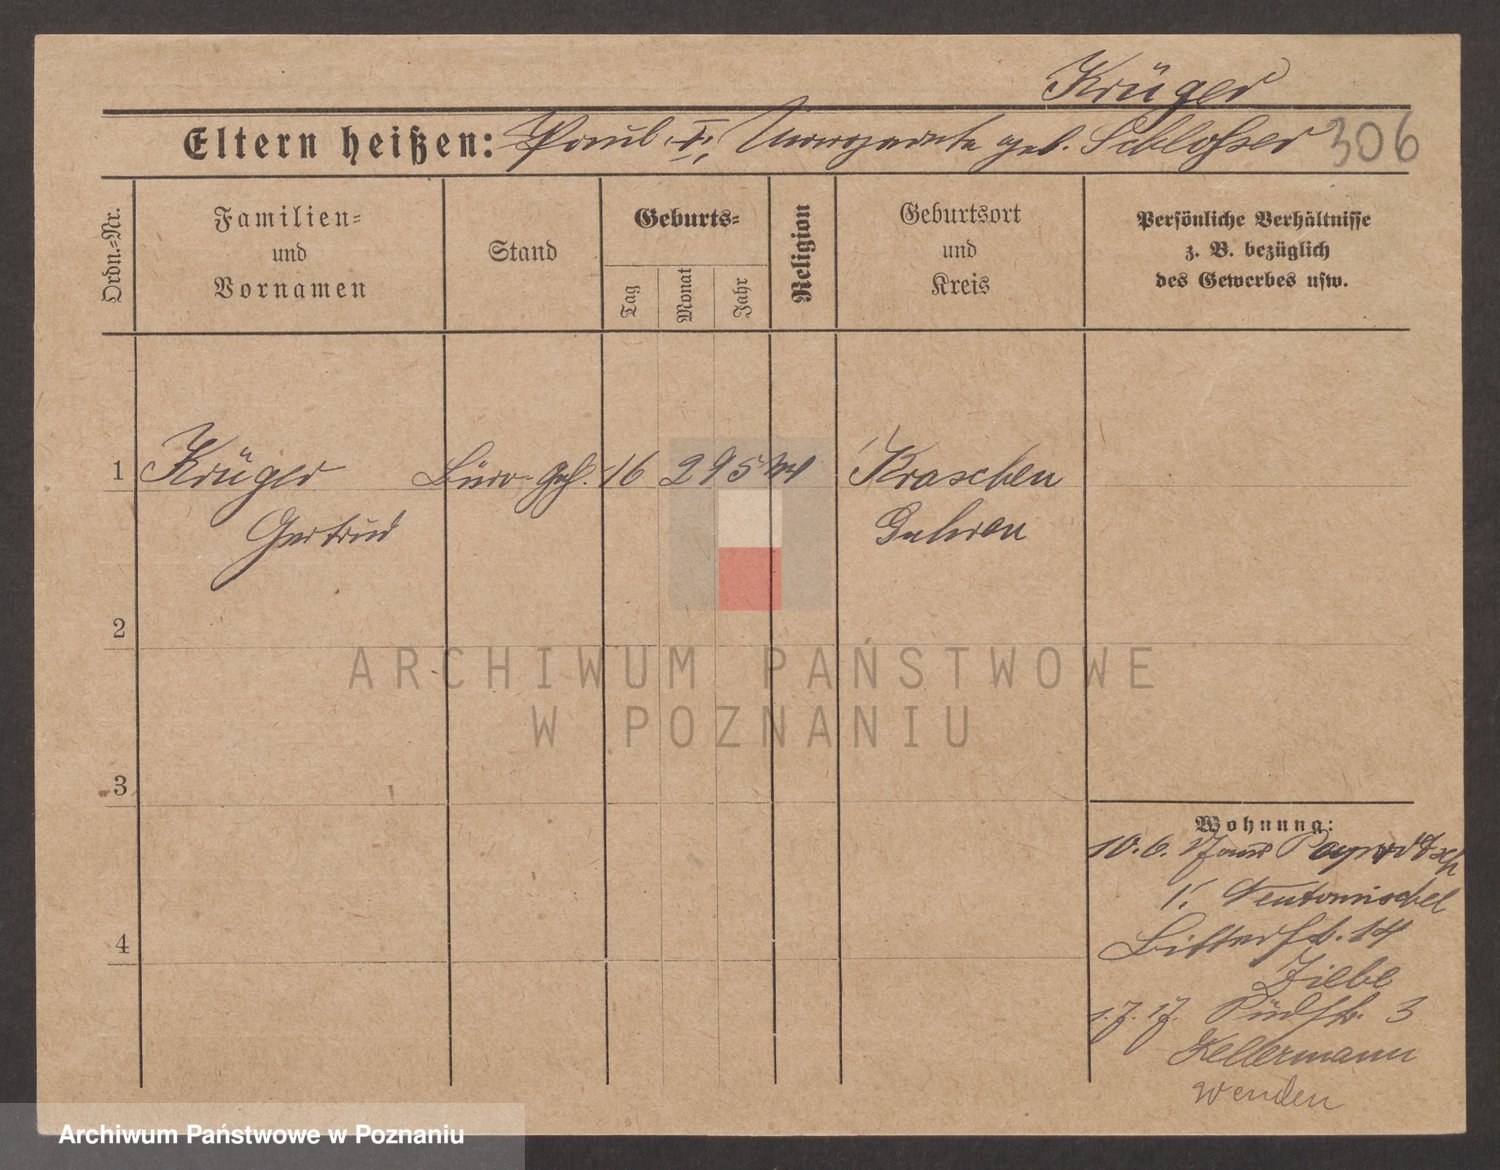 Krüger
Eltern heißen: Paul I, Margarete geb. Schlosser 306
Ordn.-Nr.
Familien-
und
Vornamen
Stand
Geburts-
Tag
Monat
Jahr
Religion
Geburtsort
und
Kreis
Persönliche Verhältnisse
z. B. bezüglich
des Gewerbes usw.
1 Krüger Büro-Geh. 16 2 95 Kraschen
Gertrud Guhrau
2
ARCHIWUM PAŃSTWOWE
W POZNANIU
3
Wohnung:
10. 6.
Neutomischel
Bitterstr. 14
Zielbe
1. 7. 17. Südstr. 3
Kellermann
4
wenden
Archiwum Państwowe w Poznaniu